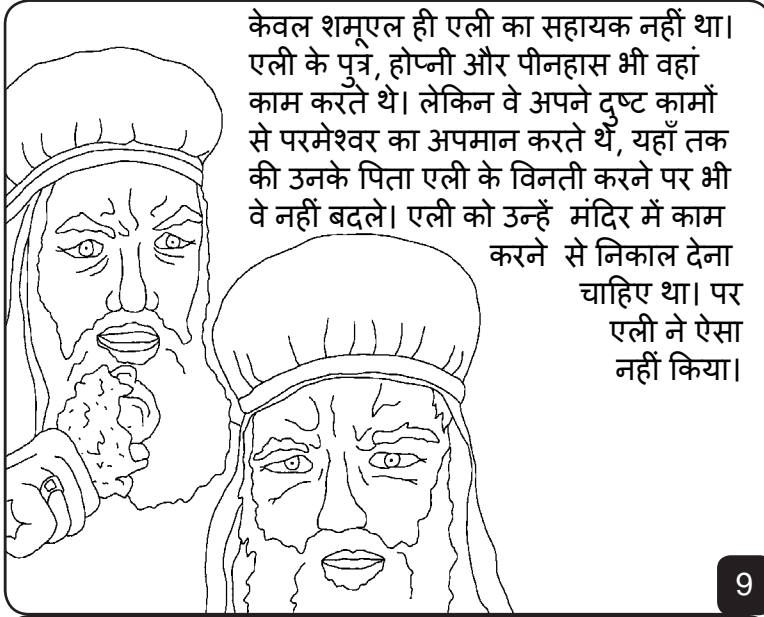 केवल शमूएल ही एली का सहायक नहीं था।
एली के पुत्र, होप्नी और पीनहास भी वहां
काम करते थे। लेकिन वे अपने दुष्ट कामों
से परमेश्वर का अपमान करते थे, यहाँ तक
की उनके पिता एली के विनती करने पर भी
वे नहीं बदले। एली को उन्हें मंदिर में काम
करने से निकाल देना
चाहिए था। पर
एली ने ऐसा
नहीं किया।
9